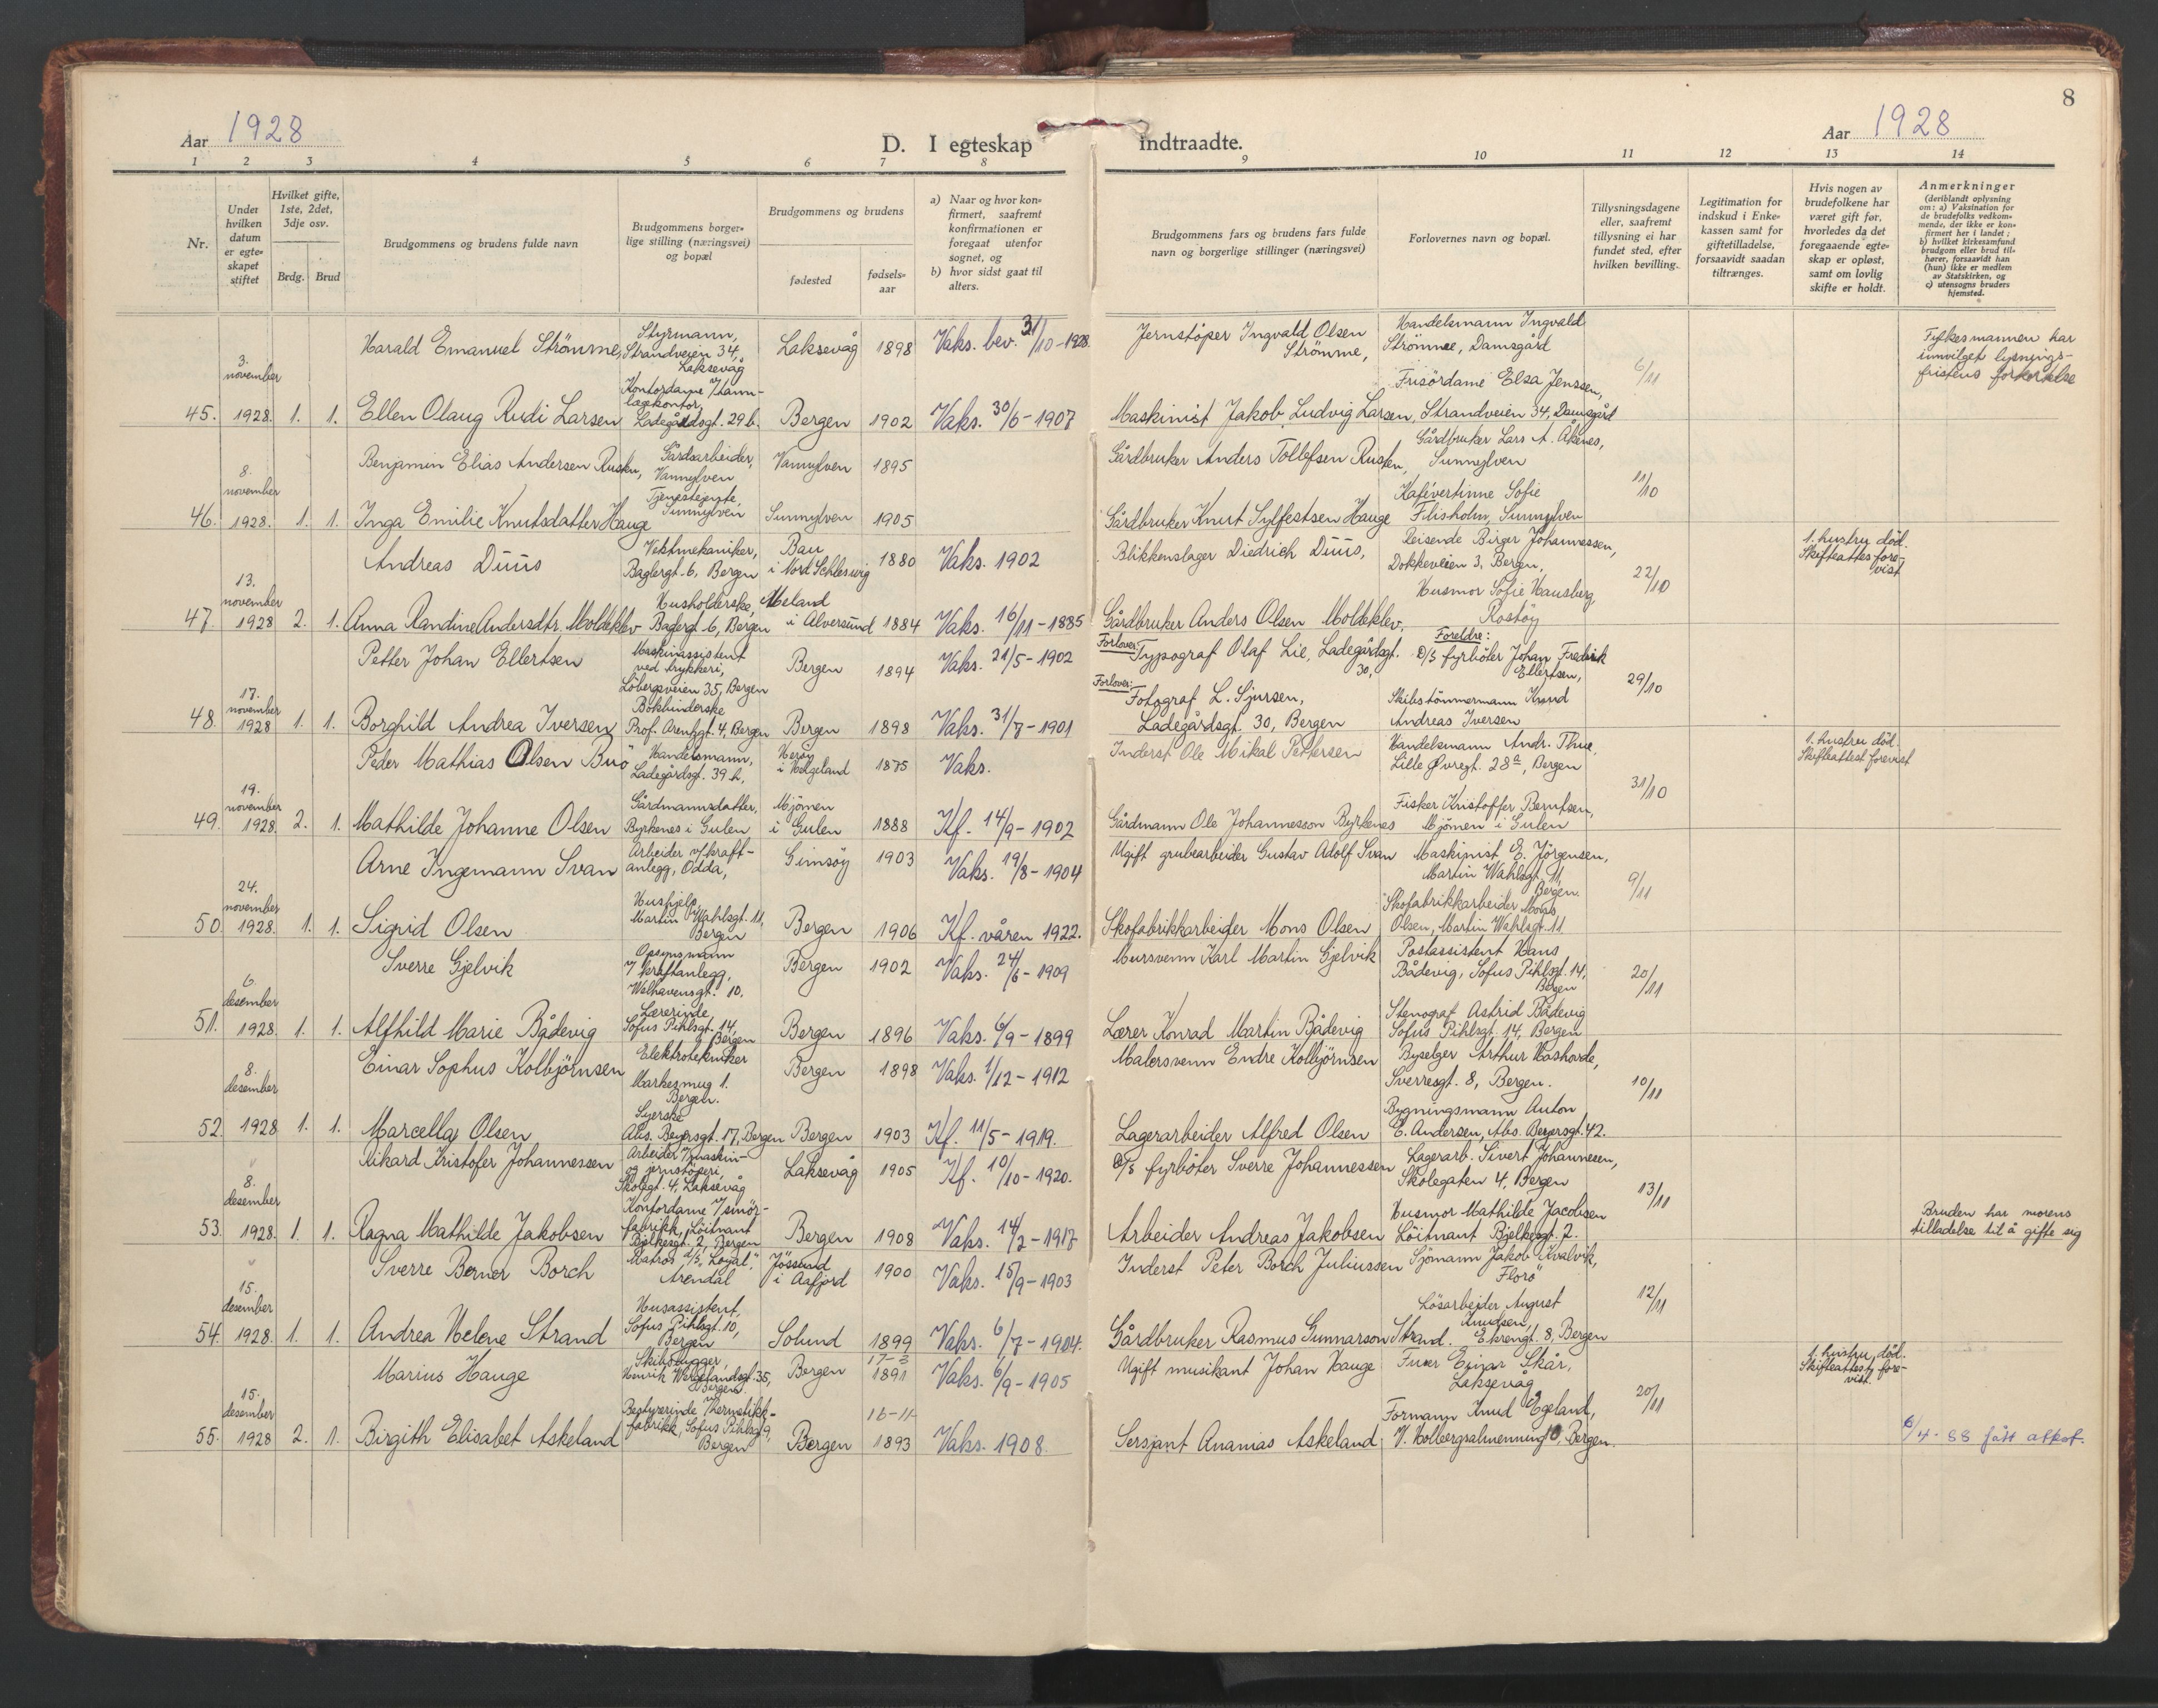 8
Aar 1928
D. I egteskap indtraadte.
Aar 1928
1 2 3 4 5 6 7 8 9 10 11 12 13 14
Nr.
Under hvilken datum er egteskapet stiftet
Hvilket gifte, 1ste, 2det, 3dje osv.
Brdg. Brud
Brudgommens og brudens fulde navn
Brudgommens borgerlige stilling (næringsvei) og bopæl
Brudgommens og brudens
fødested
fødselsaar
a) Naar og hvor konfirmert, saafremt konfirmationen er foregaat utenfor sognet, og
b) hvor sidst gaat til alters.
Brudgommens fars og brudens fars fulde navn og borgerlige stillinger (næringsvei)
Forlovernes navn og bopæl.
Tillysningsdagene eller, saafremt tillysning ei har fundet sted, efter hvilken bevilling.
Legitimation for indskud i Enkekassen samt for giftetilladelse, forsaavidt saadan tiltrænges.
Hvis nogen av brudefolkene har været gift før, hvorledes da det foregaaende egteskap er opløst, samt om lovlig skifte er holdt.
Anmerkninger (deriblandt oplysning om: a) Vaksination for de brudefolks vedkommende, der ikke er konfirmert her i landet; b) hvilket kirkesamfund brudgom eller brud tilhører, forsaavidt han (hun) ikke er medlem av Statskirken, og c) utensogns bruders hjemsted.
45. 3. november 1928. 1. 1.
Harald Emanuel Strömme, Styrmann, Strandveien 34, Laksevåg Laksevåg 1898 Vaks. bev. 31/10-1928.
Jernstöper Ingvald Olsen Strömme, Handelsmann Ingvald Strömme, Damsgård 6/11
Fylkesmannen har innvilget lysningsfristens forkortelse
Ellen Olaug Rudi Larsen Kontordame Ladegårdsgt. 29 b. Bergen 1902 Vaks. 30/6-1907
Maskinist Jakob Ludvig Larsen, Frisördame Elsa Jenssen, Strandveien 34, Damsgård
46. 8. november 1928. 1. 1.
Benjamin Elias Andersen Rusten, Gårdsarbeider, Vannylven Vannylven 1895
Gårdbruker Anders Tollefsen Rusten, Gårdbruker Lars A. Åkenes, Sunnylven 11/10
Inga Emilie Knutsdatter Hauge Tjenestejente, Sunnylven Sunnylven 1905
Gårdbruker Knut Sylfestsen Hauge Kafévertinne Sofie Flisholm, Sunnylven
47. 13. november 1928 2. 1.
Andreas Duus Vektmekaniker, Baglergt. 6, Bergen Bau i Nord Schleswig 1880 Vaks. 1902
Blikkenslager Diedrich Duus, Reisende Birger Johannessen, Dokkeveien 3, Bergen, 22/10
1. hustru död. Skifteattest forevist
Anna Randine Andersdtr. Moldeklev Husholderske, Baglergt. 6, Bergen Meland i Alversund 1884 Vaks. 16/11-1885
Gårdbruker Anders Olsen Moldeklev, Husmor Sofie Hausberg, Rostöy
48. 17. november 1928 1. 1.
Petter Johan Ellertsen Maskinassistent ved trykkeri, Löbergsveien 35, Bergen Bergen 1894 Vaks. 21/5-1902
Forlover: Typograf Olaf Lie, Ladegårdsgt. 30, Foreldre: D/S fyrböter Johan Fredrik Ellertsen, 29/10
Borghild Andrea Iversen Bokbinderske Prof. Arentzgt. 4, Bergen Bergen 1898 Vaks. 31/7-1901
Forlover: Fotograf L. Sjursen, Ladegårdsgt. 30, Bergen Skibstömmermann Knud Andreas Iversen
49. 19. november 1928. 2. 1.
Peder Mathias Olsen Buö Handelsmann, Ladegårdsgt. 39 b, Heröy i Helgeland 1875 Vaks.
Inderst Ole Mikal Pettersen Handelsmann Andr. Thue, Lille Øvregt. 28 a, Bergen 31/10
1. hustru död. Skifteattest forevist
Mathilde Johanne Olsen Gårdmannsdatter, Byrkenes i Gulen Mjömen i Gulen 1888 Kf. 14/9-1902
Gårdmann Ole Johannesson Byrkenes Fisker Kristoffer Berntsen, Mjömen i Gulen
50. 24. november 1928. 1. 1.
Arne Ingemann Svan Arbeider v/kraftanlegg, Odda, Gimsöy 1903 Vaks. 19/8-1904
Ugift grubearbeider Gustav Adolf Svan Maskinist E. Jörgensen, Martin Wahlsgt. 11, Bergen. 9/11
Sigrid Olsen Hushjelp, Martin Wahlsgt. 11, Bergen Bergen 1906 Kf. våren 1922.
Skofabrikkarbeider Mons Olsen Skofabrikkarbeider Mons Olsen, Martin Wahlsgt. 11
51. 6. desember 1928. 1. 1.
Sverre Gjelvik Opsynsmann v/kraftanlegg, Welhavensgt. 10. Bergen 1902 Vaks. 24/6-1909
Mursvenn Karl Martin Gjelvik Postassistent Hans Bådevig, Sofus Pihlsgt. 14, Bergen 20/11
Alfhild Marie Bådevig Lærerinde, Sofus Pihlsgt. 14, Bergen Bergen 1896 Vaks. 6/9-1899
Lærer Konrad Martin Bådevig Stenograf Astrid Bådevig Sofus Pihlsgt. 14, Bergen
52. 8. desember 1928 1. 1.
Einar Sophus Kolbjörnsen Elektrotekniker Markesmug 1. Bergen. Bergen 1898 Vaks. 1/12-1912
Malersvenn Endre Kolbjörnsen Byselger Arthur Hashorde, Sverresgt. 8, Bergen. 10/11
Marcella Olsen Syerske Abs. Beyersgt. 17, Bergen Bergen 1903 Kf. 11/5-1919.
Lagerarbeider Alfred Olsen Bygningsmann Anton E. Andersen, Abs. Beyersgt. 42.
53. 8. desember 1928. 1. 1.
Rikard Kristofer Johannessen Arbeider v/maskin- og jernstöperi, Skolegt. 4, Laksevåg Laksevåg 1905 Kf. 10/10-1920.
D/S fyrböter Sverre Johannessen Lagerarb. Sivert Johannesen, Skolegaten 4, Bergen 13/11
Ragna Mathilde Jakobsen Kontordame v/smörfabrikk, Löitnant Bjelkesgt. 2, Bergen Bergen 1908 Vaks. 14/2-1917
Arbeider Andreas Jakobsen Husmor Mathilde Jacobsen Löitnant Bjelkesgt. 2.
Bruden har morens tilladelse til å gifte sig
54. 15. desember 1928. 1. 1.
Sverre Berner Borch Matros D/S "Loyal", Arendal Jössund i Aafjord 1900 Vaks. 15/9-1903
Inderst Peter Borch Juliussen Sjömann Jakob Kvalvik, Florö 12/11
Andrea Helene Strand Husassistent, Sofus Pihlsgt. 10, Bergen Solund 1899 Vaks. 6/7-1904.
Gårdbruker Rasmus Gunnarson Strand. Lösarbeider August Knudsen, Ekrengt. 8, Bergen
55. 15. desember 1928 2. 1.
Marius Hauge Skibsbygger, Henrik Wergelandsgt. 35, Bergen. Bergen 17-3 1891 Vaks. 6/9-1905
Ugift musikant Johan Hauge Furer Einar Skår, Laksevåg 20/11
1. hustru död. Skifteattest forevist.
Birgith Elisabet Askeland Bestyrerinde v/hermetikkfabrikk, Sofus Pihlsgt. 9, Bergen Bergen 16-11- 1893 Vaks. 1908.
Sersjant Ananias Askeland Formann Knud Egeland, V. Holbergsalmenning 10, Bergen.
6/4-88 fått attest.